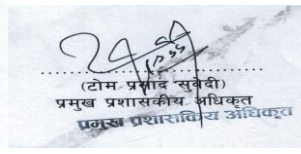 (टोम प्रसाद सुवेदी)
प्रमुख प्रशासकीय अधिकृत
प्रमुख प्रशासकिय अधिकृत